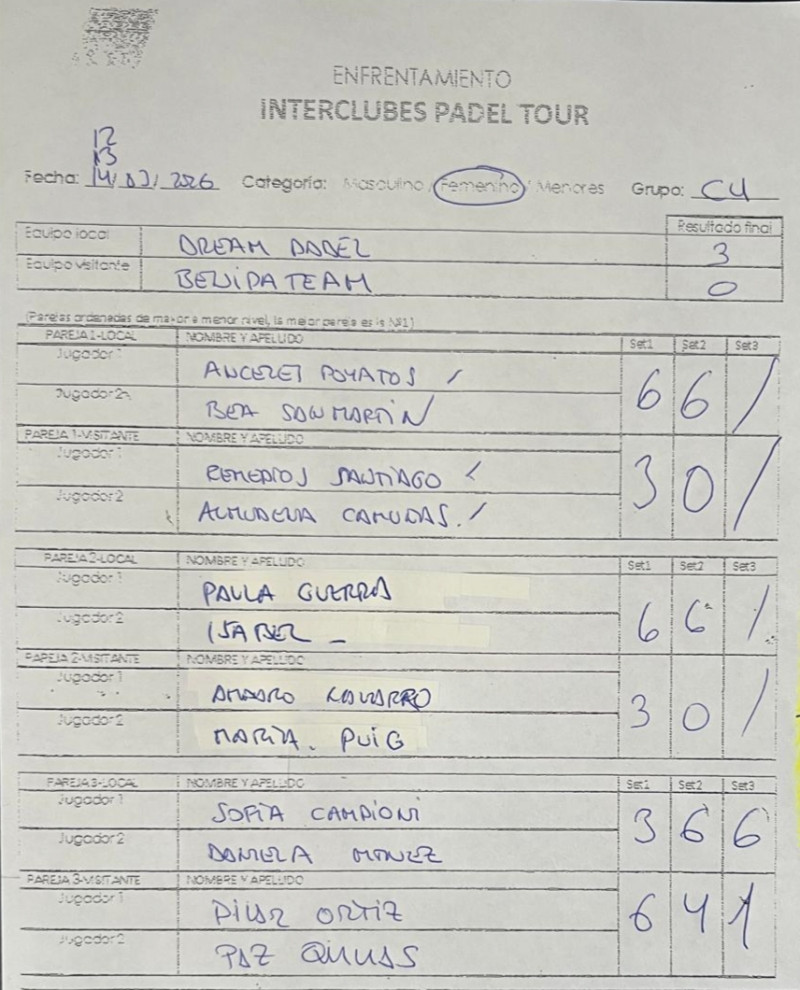 ENFRENTAMIENTO
INTERCLUBES PADEL TOUR
12
13
Fecha: 14/03/2026 Categoría: Masculino / Femenino / Menores Grupo: C4
Resultado final
Equipo local DREAM PADEL 3
Equipo visitante BENIPATEAM 0
(Parejas ordenadas de mayor a menor nivel, la mejor pareja es la Nº1)
PAREJA 1-LOCAL NOMBRE Y APELLIDO Set1 Set2 Set3
Jugador 1 POYATOS /
Jugador 2 BEA SANMARTIN /
6 6 /
PAREJA 1-VISITANTE NOMBRE Y APELLIDO
Jugador 1 REMEDIOS SANTIAGO /
Jugador 2 ALMUDENA CAMUÑAS. /
3 0 /
PAREJA 2-LOCAL NOMBRE Y APELLIDO Set1 Set2 Set3
Jugador 1 PAULA GUERRA
Jugador 2 ISABEL _
6 6 /
PAREJA 2-VISITANTE NOMBRE Y APELLIDO
Jugador 1 AMPARO NAVARRO
Jugador 2 MARIA. PUIG
3 0 /
PAREJA 3-LOCAL NOMBRE Y APELLIDO Set1 Set2 Set3
Jugador 1 SOFIA CAMPIONI
Jugador 2 DANIELA
3 6 6
PAREJA 3-VISITANTE NOMBRE Y APELLIDO
Jugador 1 PILAR ORTIZ
Jugador 2 PAZ
6 4 1